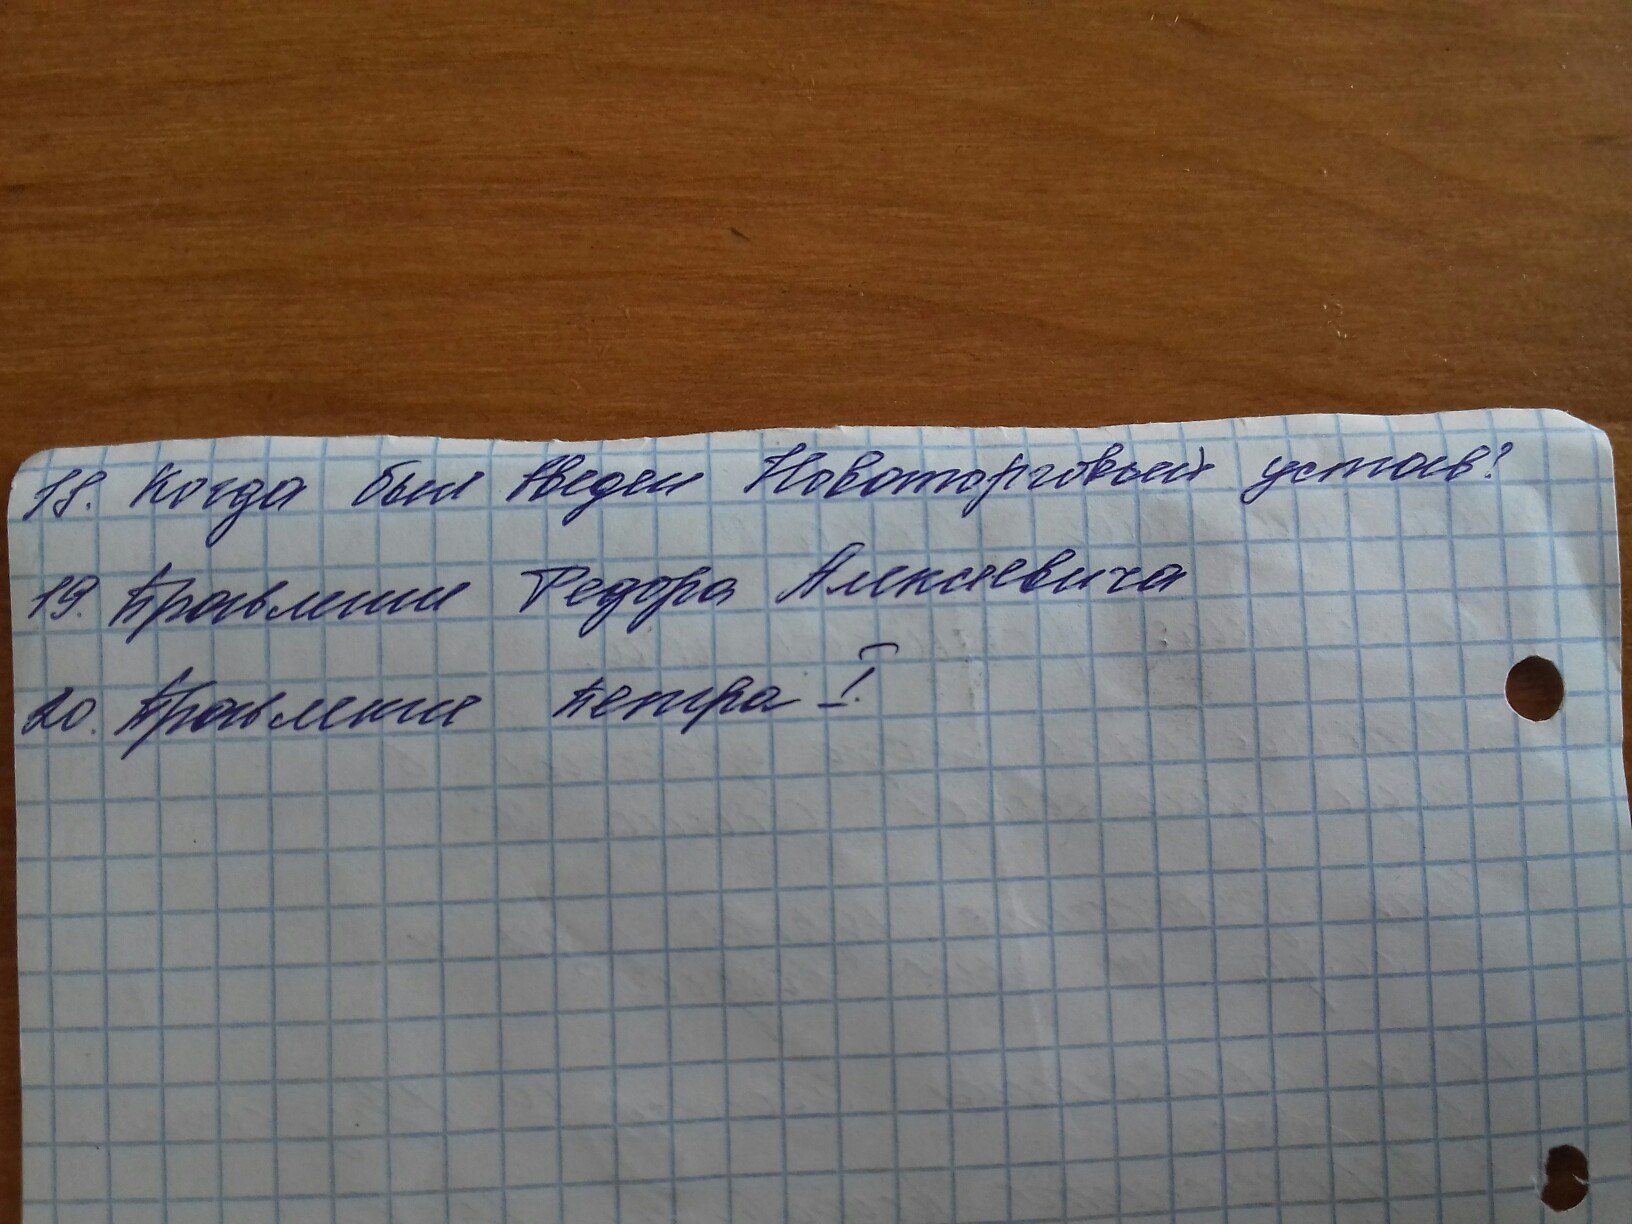 18. Когда был введен Новоторговый устав?
19. Правление Федора Алексеевича
20. Правление Петра I.